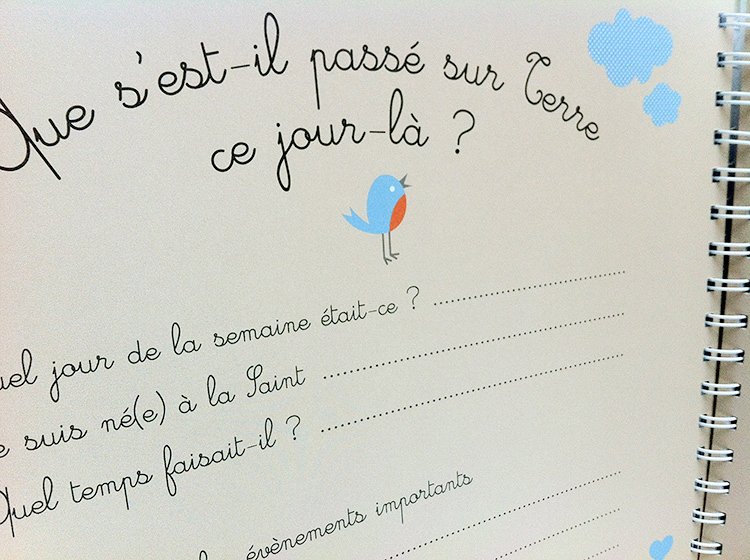 Que s'est-il passé sur Terre
ce jour-là ?
uel jour de la semaine était-ce ?
e suis né(e) à la Saint
Quel temps faisait-il ?
évènements importants